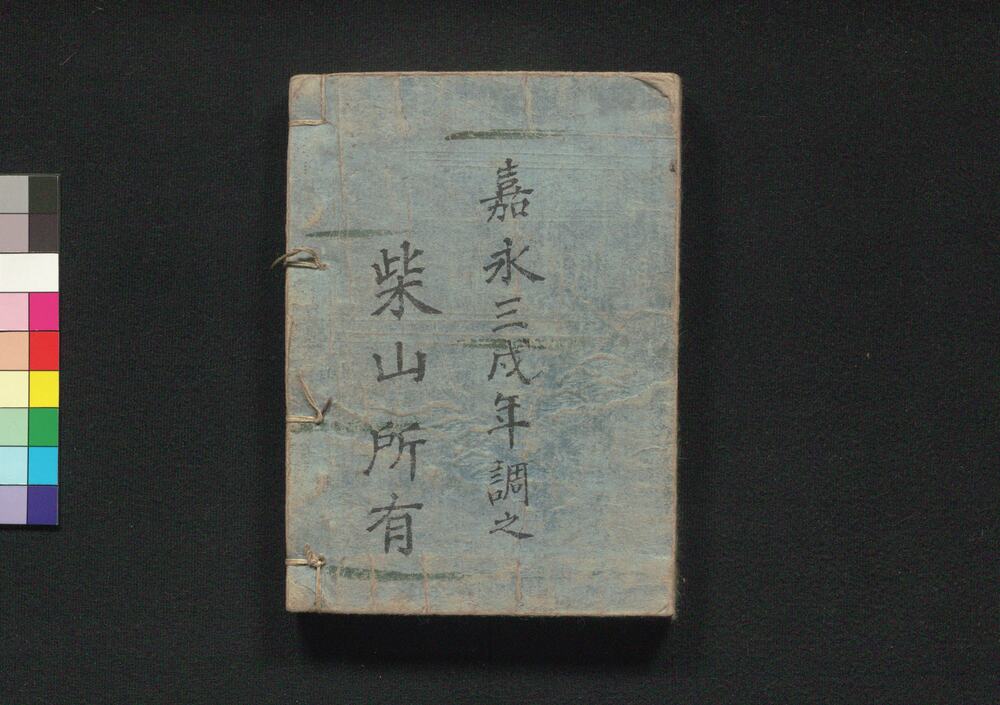 嘉永三戌年調之
柴山所有